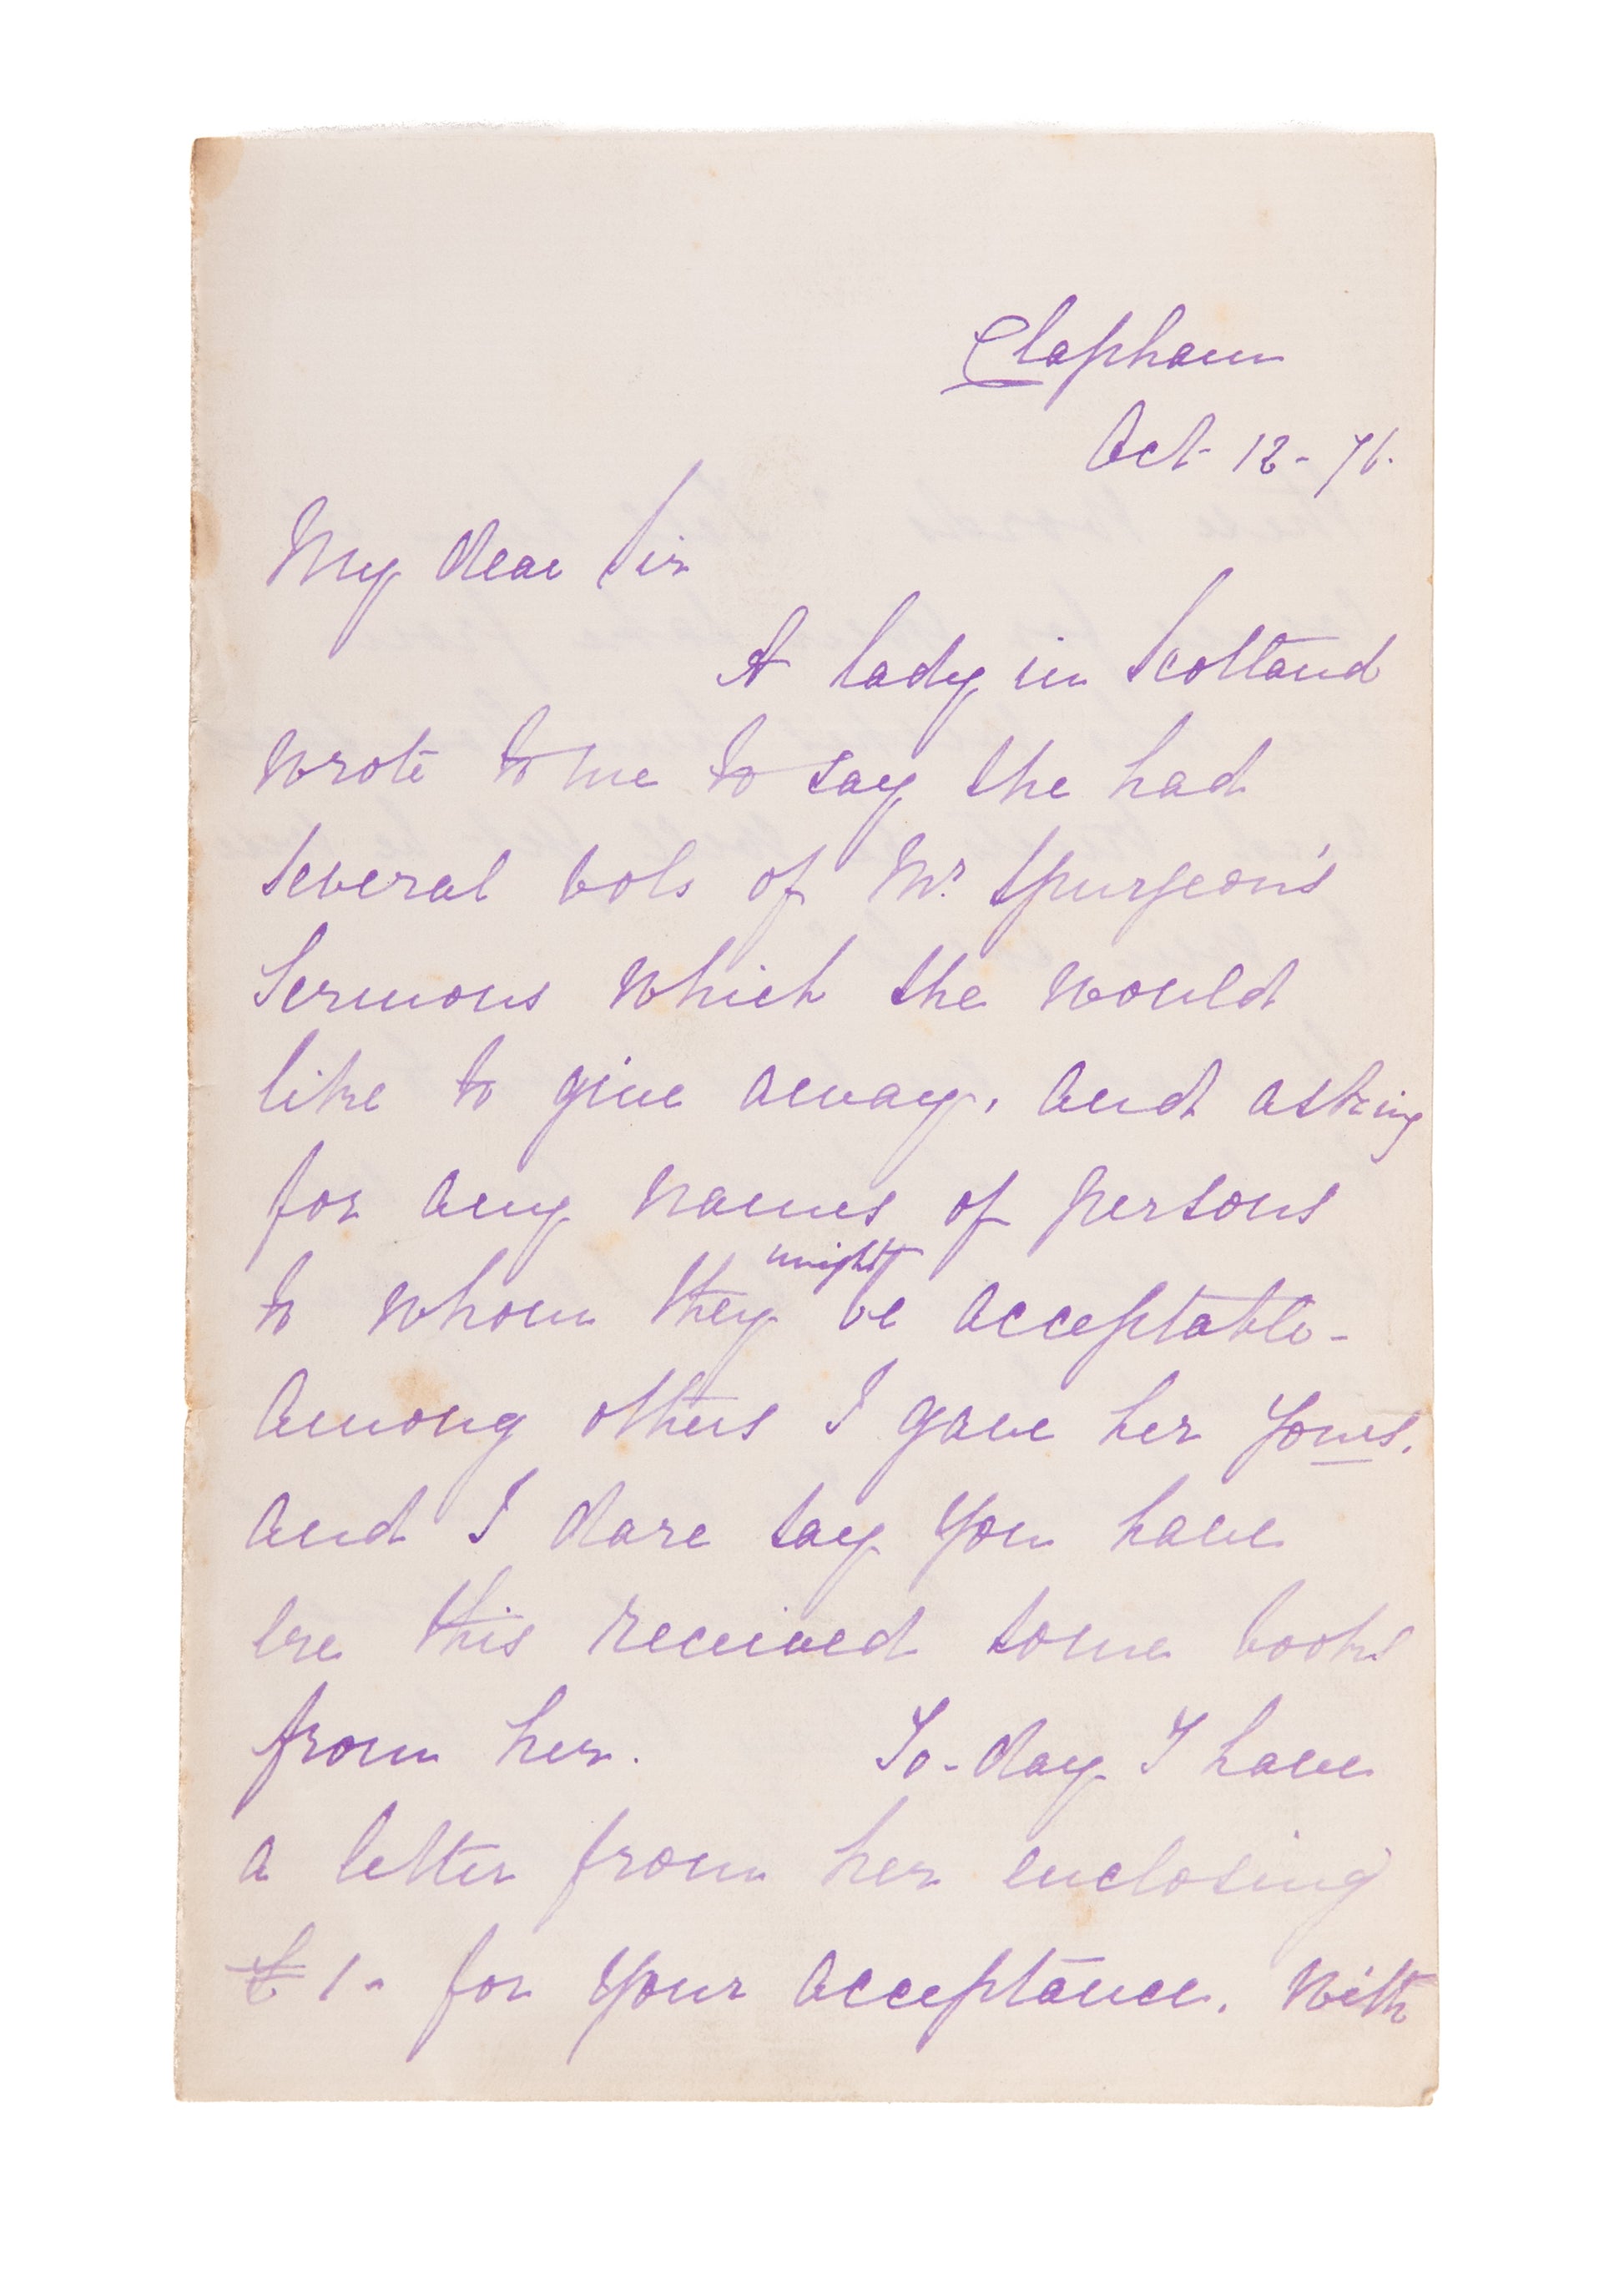 Clapham
Oct 12 - 76.
My dear Sir
A lady in Scotland
wrote to me to say she had
several vols of Mr. Spurgeon's
Sermons which she would
like to give away, and asking
for any names of persons
might
to whom they be acceptable -
Among others I gave her yours,
and I dare say you have
ere this received some books
from her. To-day I have
a letter from her enclosing
£1- for your acceptance. With